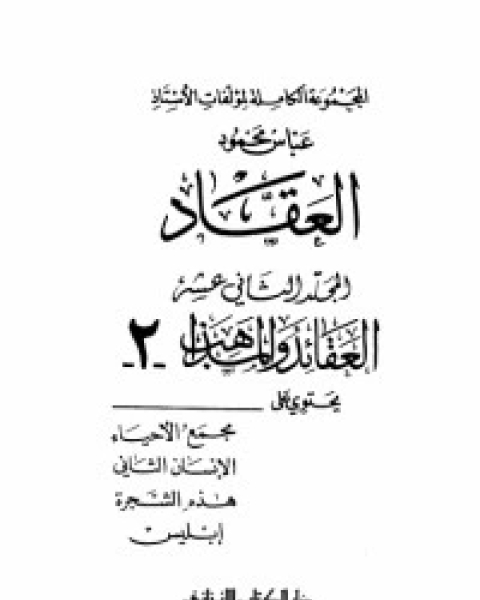 المجموعة الكاملة لمؤلفات الأستاذ
عباس محمود
العقاد
المجلد الثاني عشر
العقائد والمذاهب -٢-
يحتوي على
مجمع الأحياء
الإنسان الثاني
هذه الشجرة
إبليس